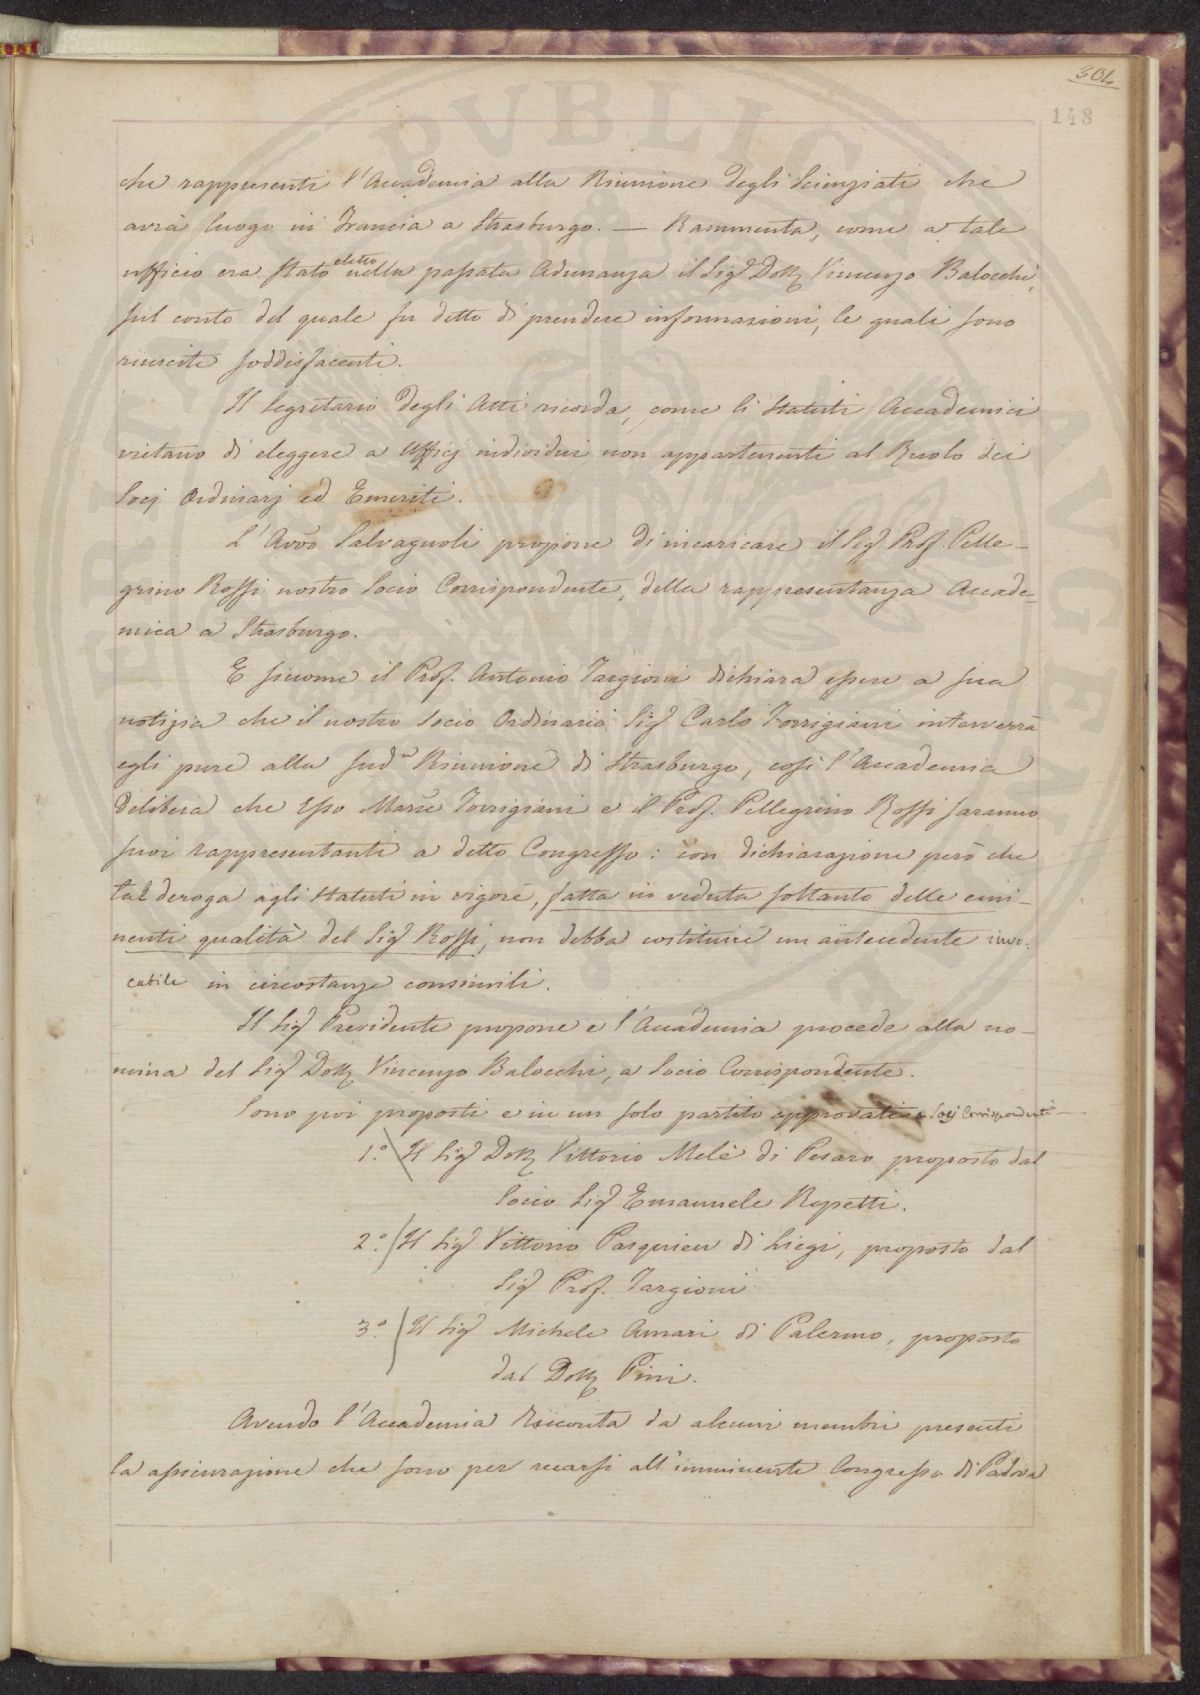 304
148
che rappresenti l'Accademia alla Riunione degli Scienziati che
avrà luogo in Francia a Strasburgo. — Rammenta, come a tale
ufficio era stato eletto nella passata Adunanza il Sig.r Dott. Vincenzo Balocchi,
sul conto del quale fu detto di prendere informazioni, le quali sono
riuscite soddisfacenti.
Il Segretario degli Atti ricorda, come li Statuti Accademici
vietano di eleggere a Ufficj individui non appartenenti al Ruolo dei
Socj Ordinarj ed Emeriti.
L'Avv.o Salvagnoli propone di incaricare il Sig.r Prof. Pelle-
grino Rossi nostro Socio Corrispondente, della rappresentanza Accade-
mica a Strasburgo.
E siccome il Prof. Antonio Targioni dichiara essere a sua
notizia che il nostro Socio Ordinario Sig.r Carlo Torrigiani interverrà
egli pure alla sud.a Riunione di Strasburgo, così l'Accademia
delibera che Esso March.e Torrigiani e il Prof. Pellegrino Rossi saranno
suoi rappresentanti a detto Congresso: con dichiarazione però che
tal deroga agli Statuti in vigore, fatta in veduta soltanto delle emi-
nenti qualità del Sig.r Rossi, non debba costituire un antecedente invo-
cabile in circostanze consimili.
Il Sig.r Presidente propone e l'Accademia procede alla no-
mina del Sig.r Dott. Vincenzo Balocchi, a Socio Corrispondente.
Sono poi proposti e in un solo partito approvati a Socj Corrispondenti
1.° Il Sig.r Dott. Vittorio Melè di Pesaro proposto dal
Socio Sig.r Emanuele Repetti.
2.° Il Sig.r Vittorio Pasquier di Liegi, proposto dal
Sig.r Prof. Targioni
3.° Il Sig.r Michele Amari di Palermo, proposto
dal Dott. Pini.
Avendo l'Accademia ricevuta da alcuni membri presenti
la assicurazione che sono per recarsi all'imminente Congresso di Padova